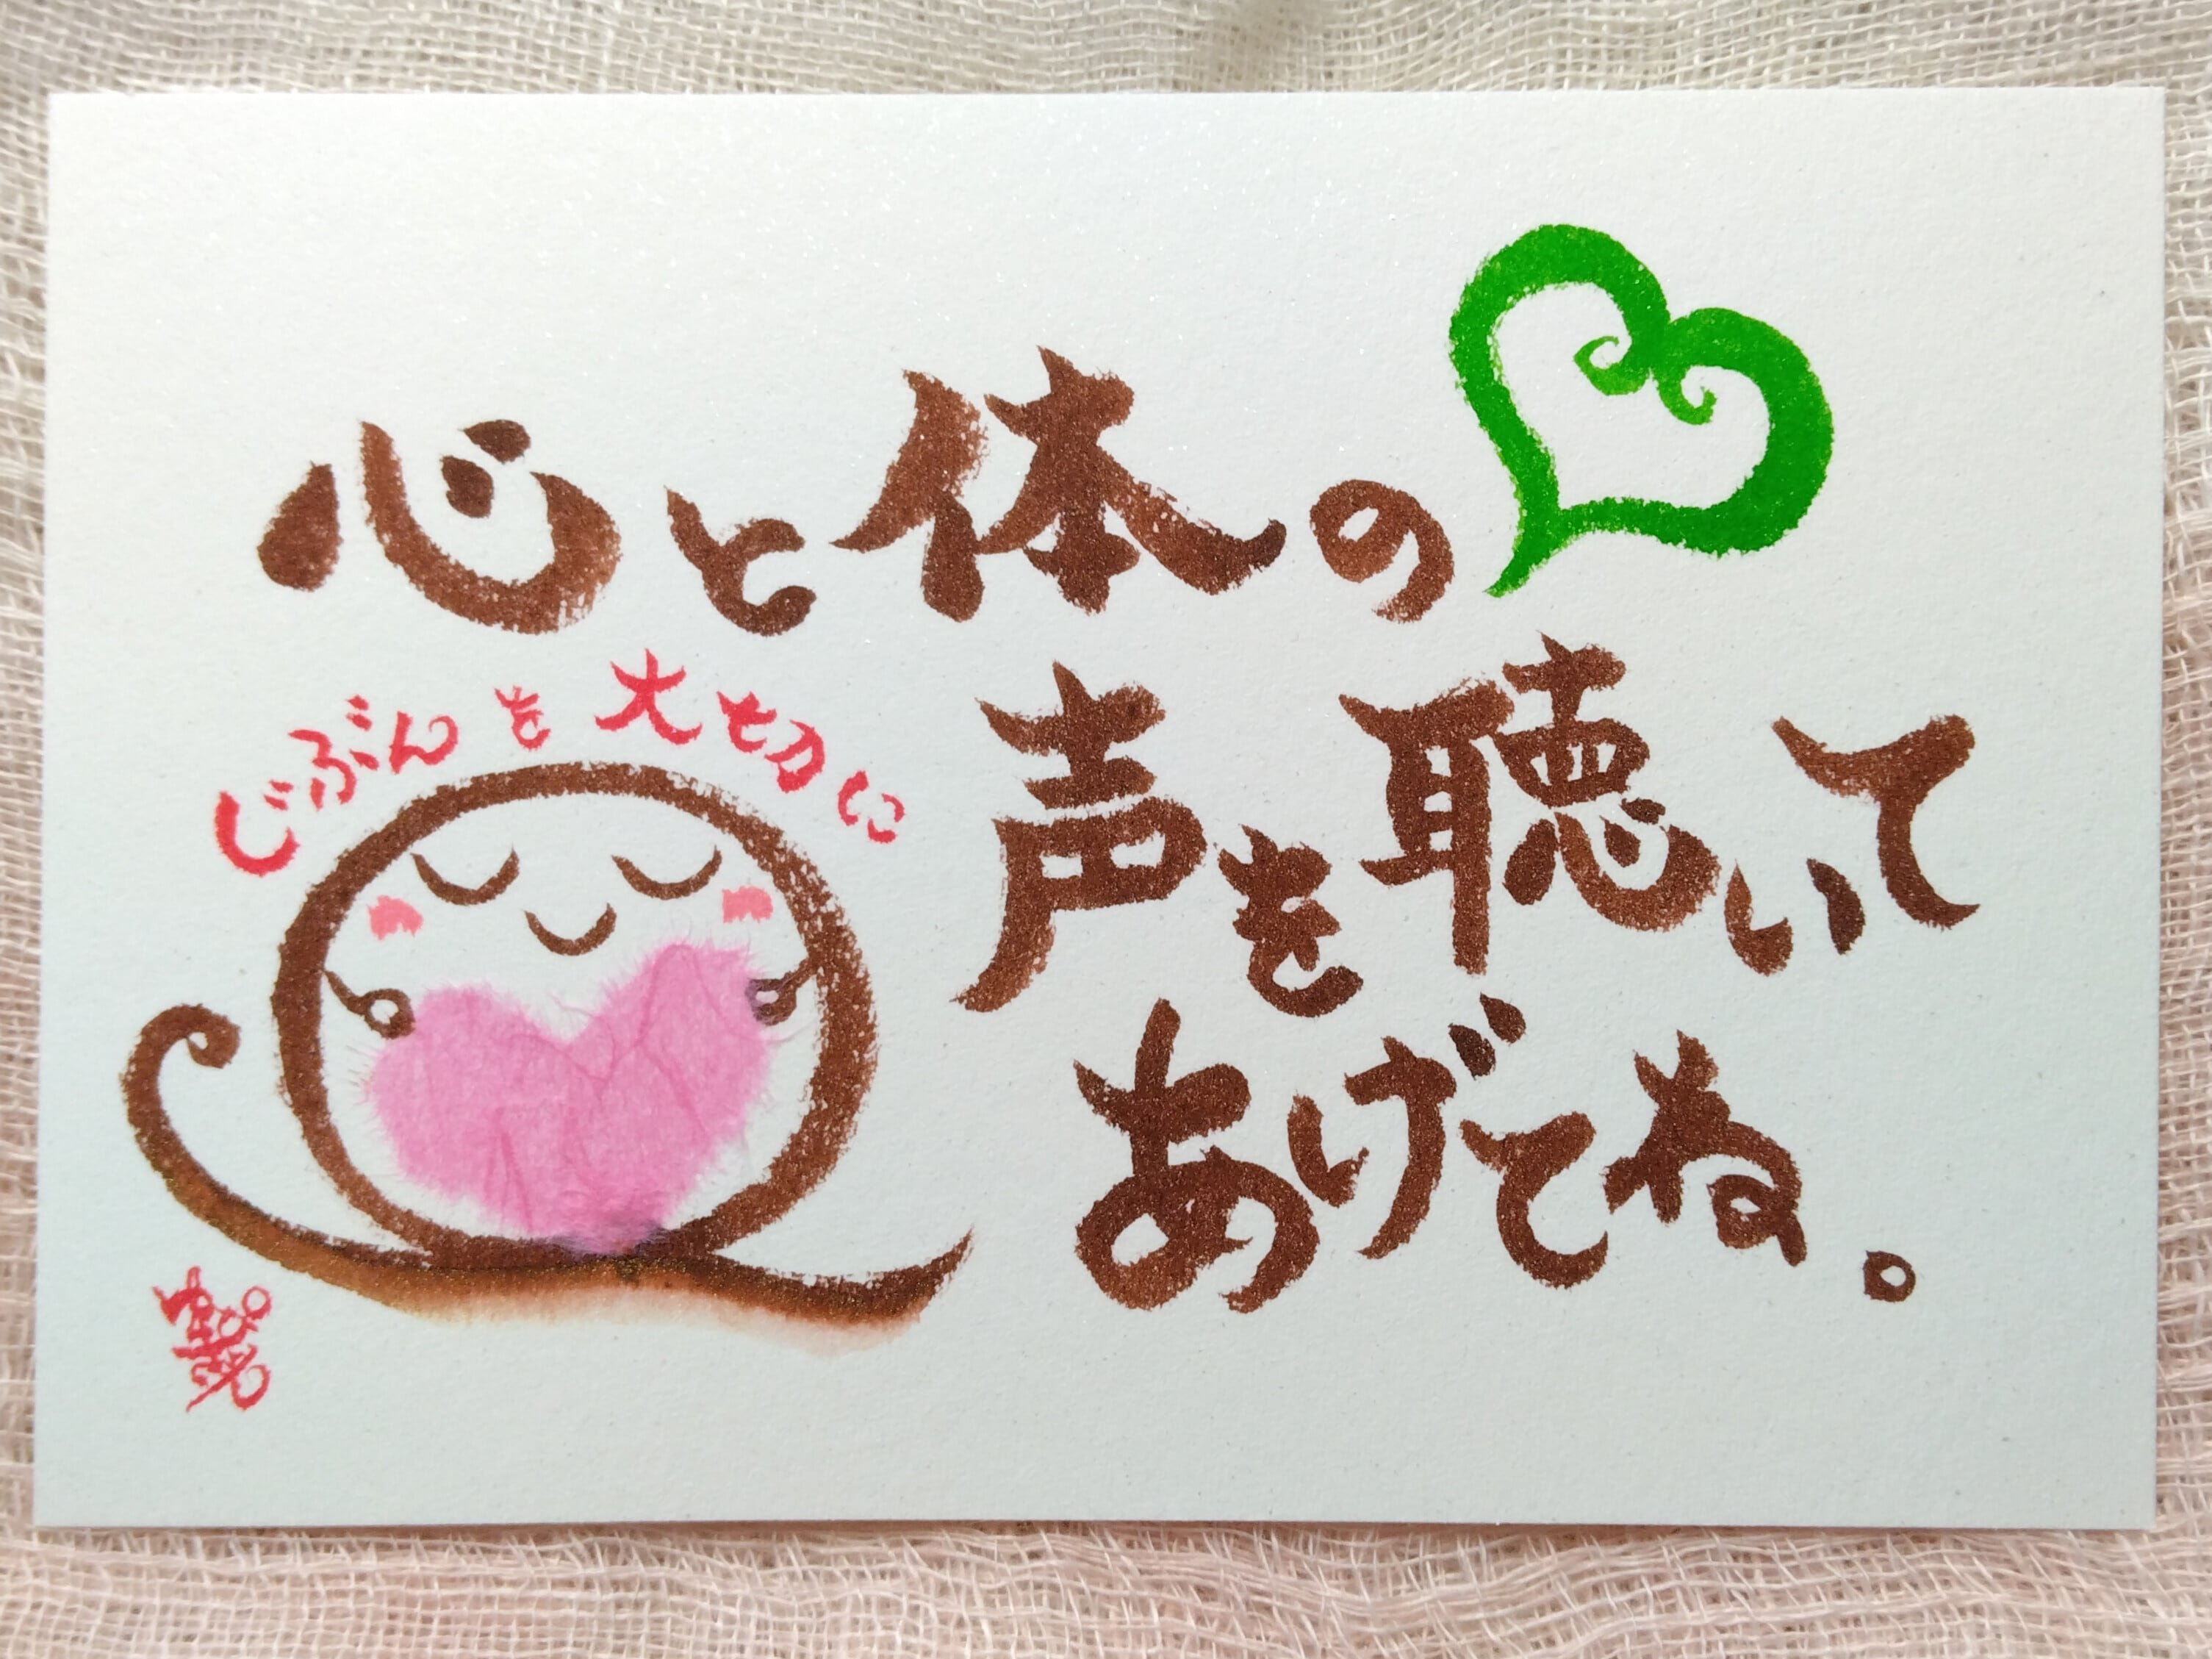 心と体の
声を聴いて
あげてね。
じぶんを大切に